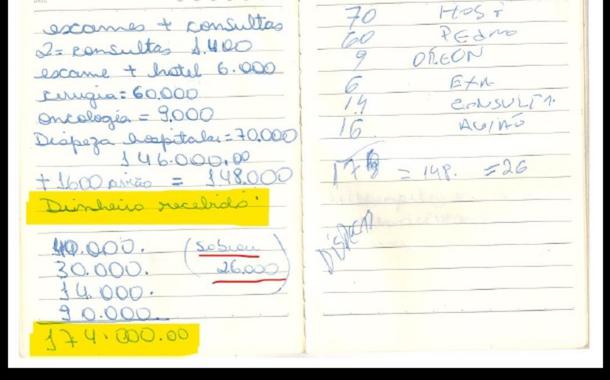 escames + consultas
2= consultas 1.400
escame + hotel 6.000
cirugia = 60.000
oncologia = 9.000
Dispeza hospitalar = 70.000
146.000,00
+ 1600 avião = 148.000
Dinheiro recebido:
40.000.
30.000.
14.000.
90.000.
174.000.00
(sobrou
26.000)
70 HOST
60 PEDRO
9 OLEON
6 EXA
14 CONSULTA
16 AVIÃO
17 = 148. = 26